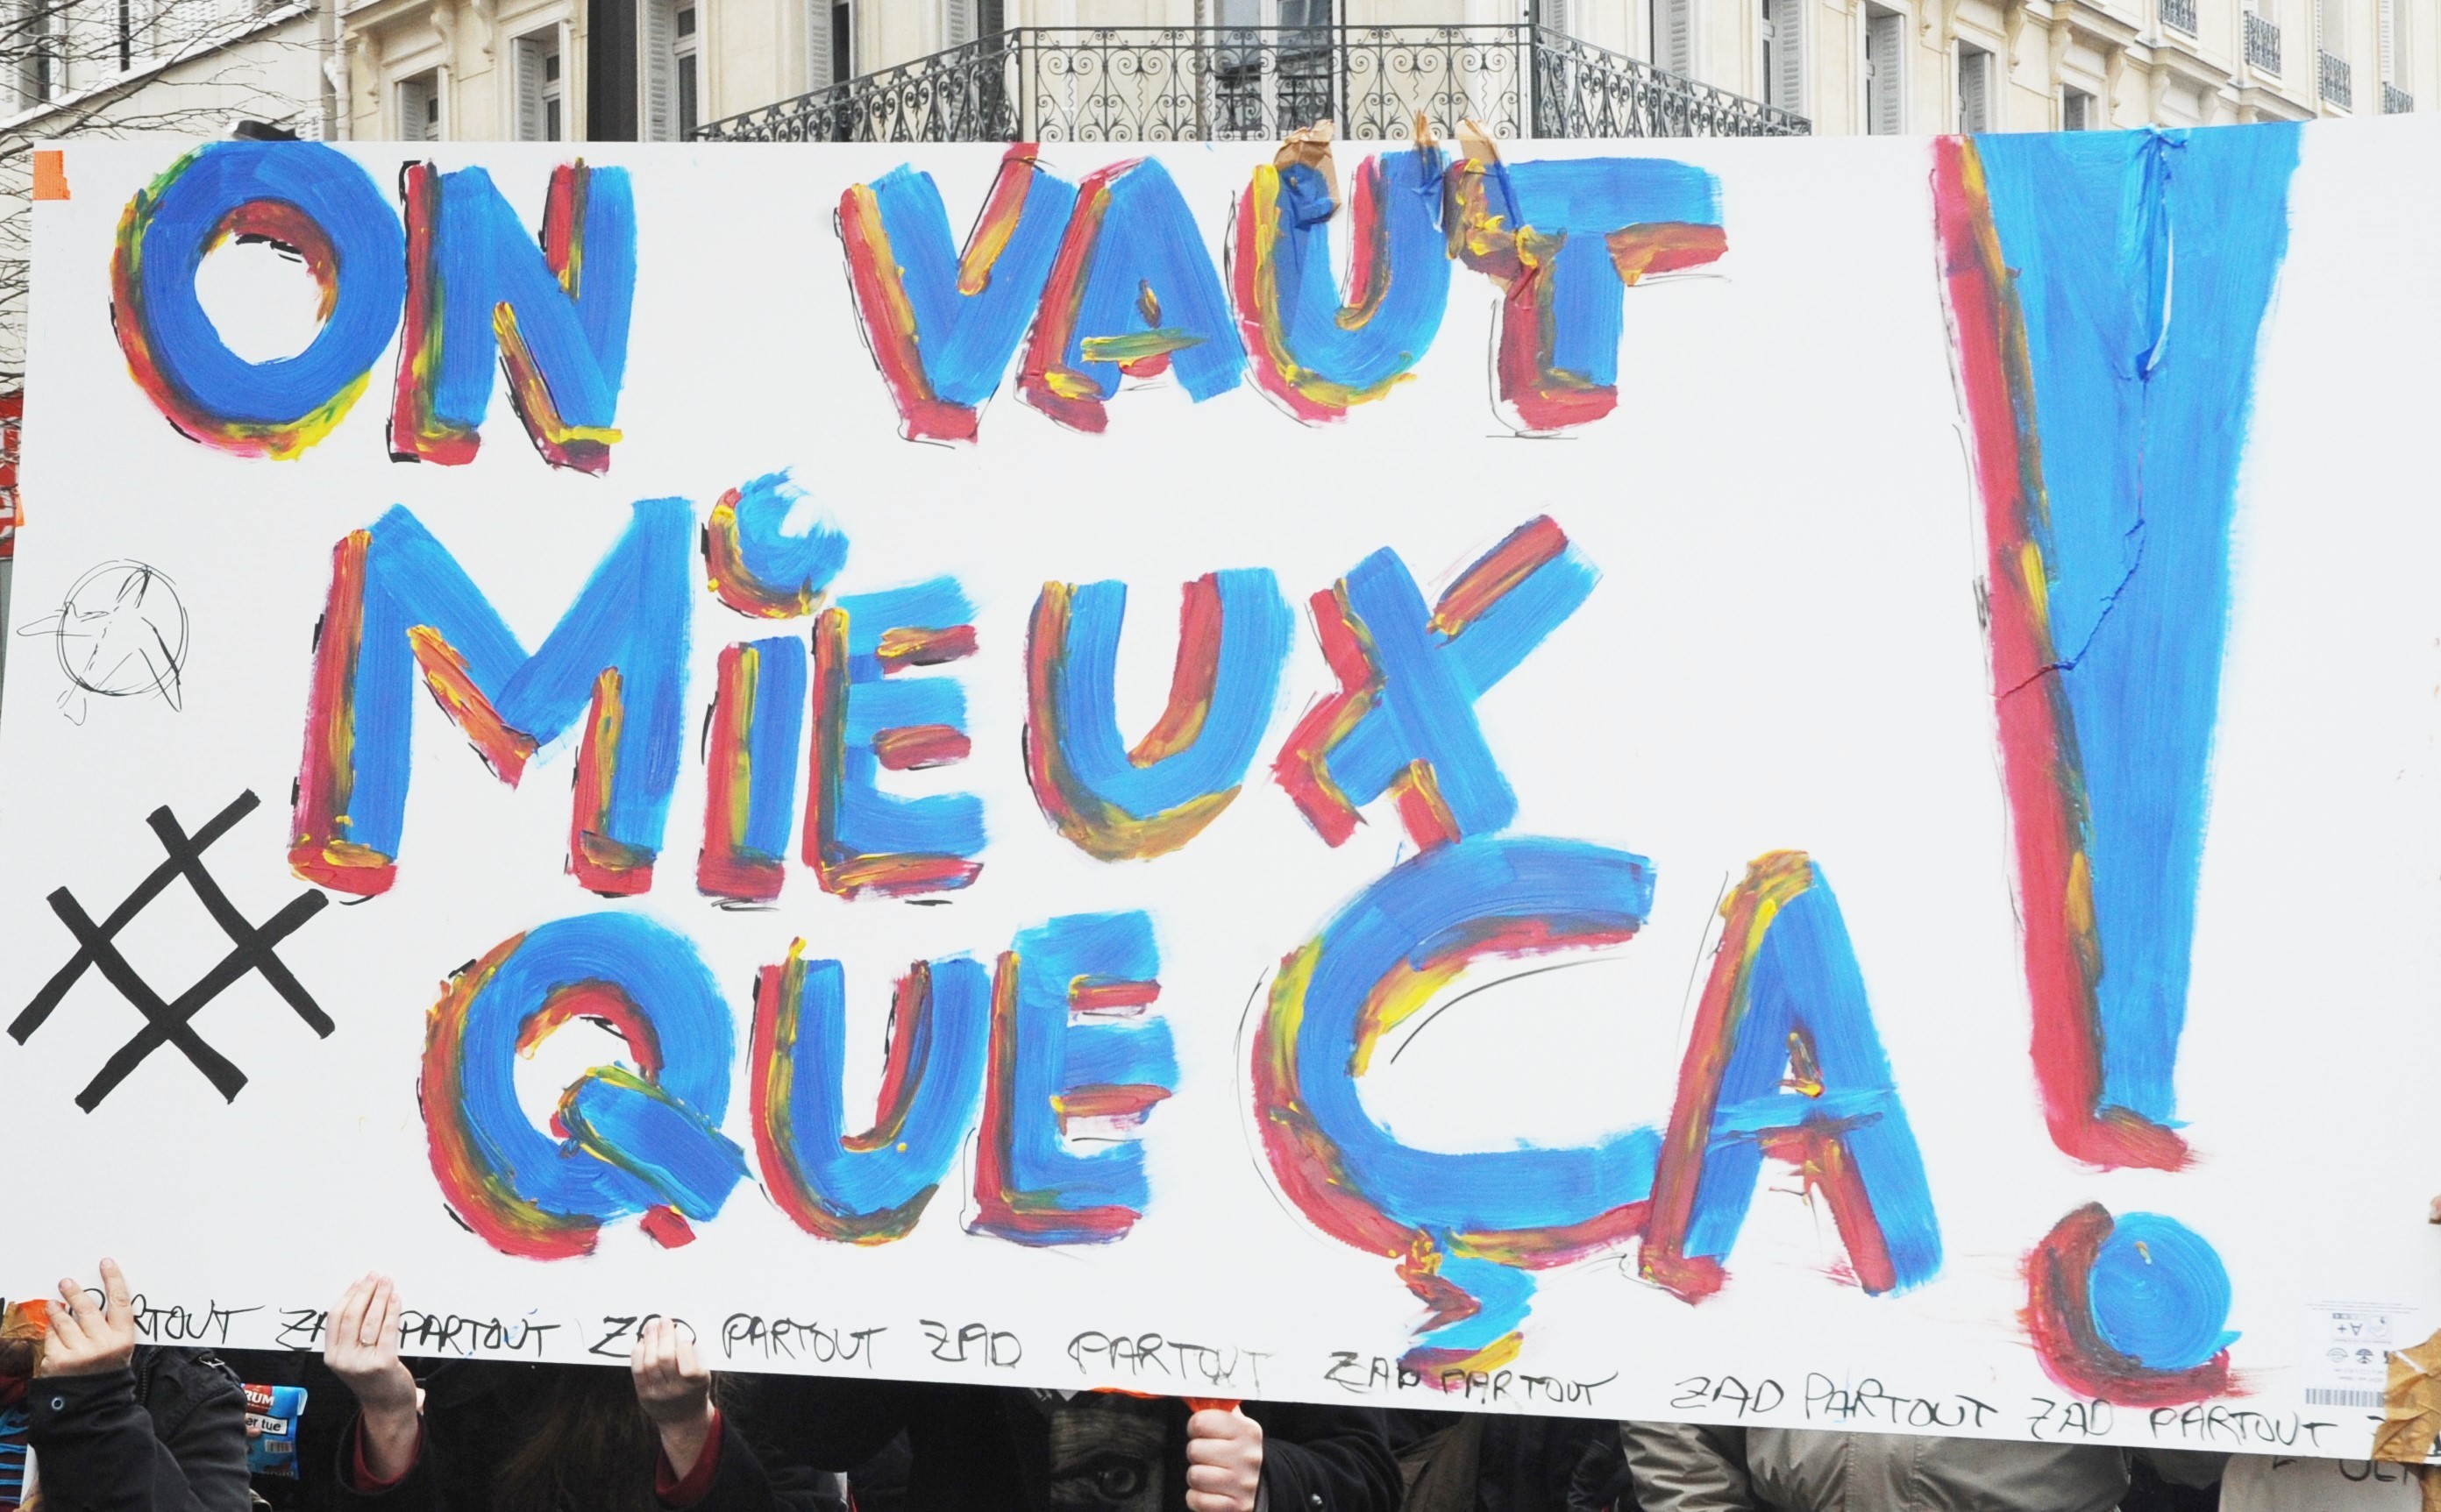 ON VAUT !
MiEUX
# QUE ÇA
PARTOUT ZAD PARTOUT ZAD PARTOUT ZAD PARTOUT ZAD PARTOUT ZAD PARTOUT ZAD PARTOUT
A+
RUM
er tue